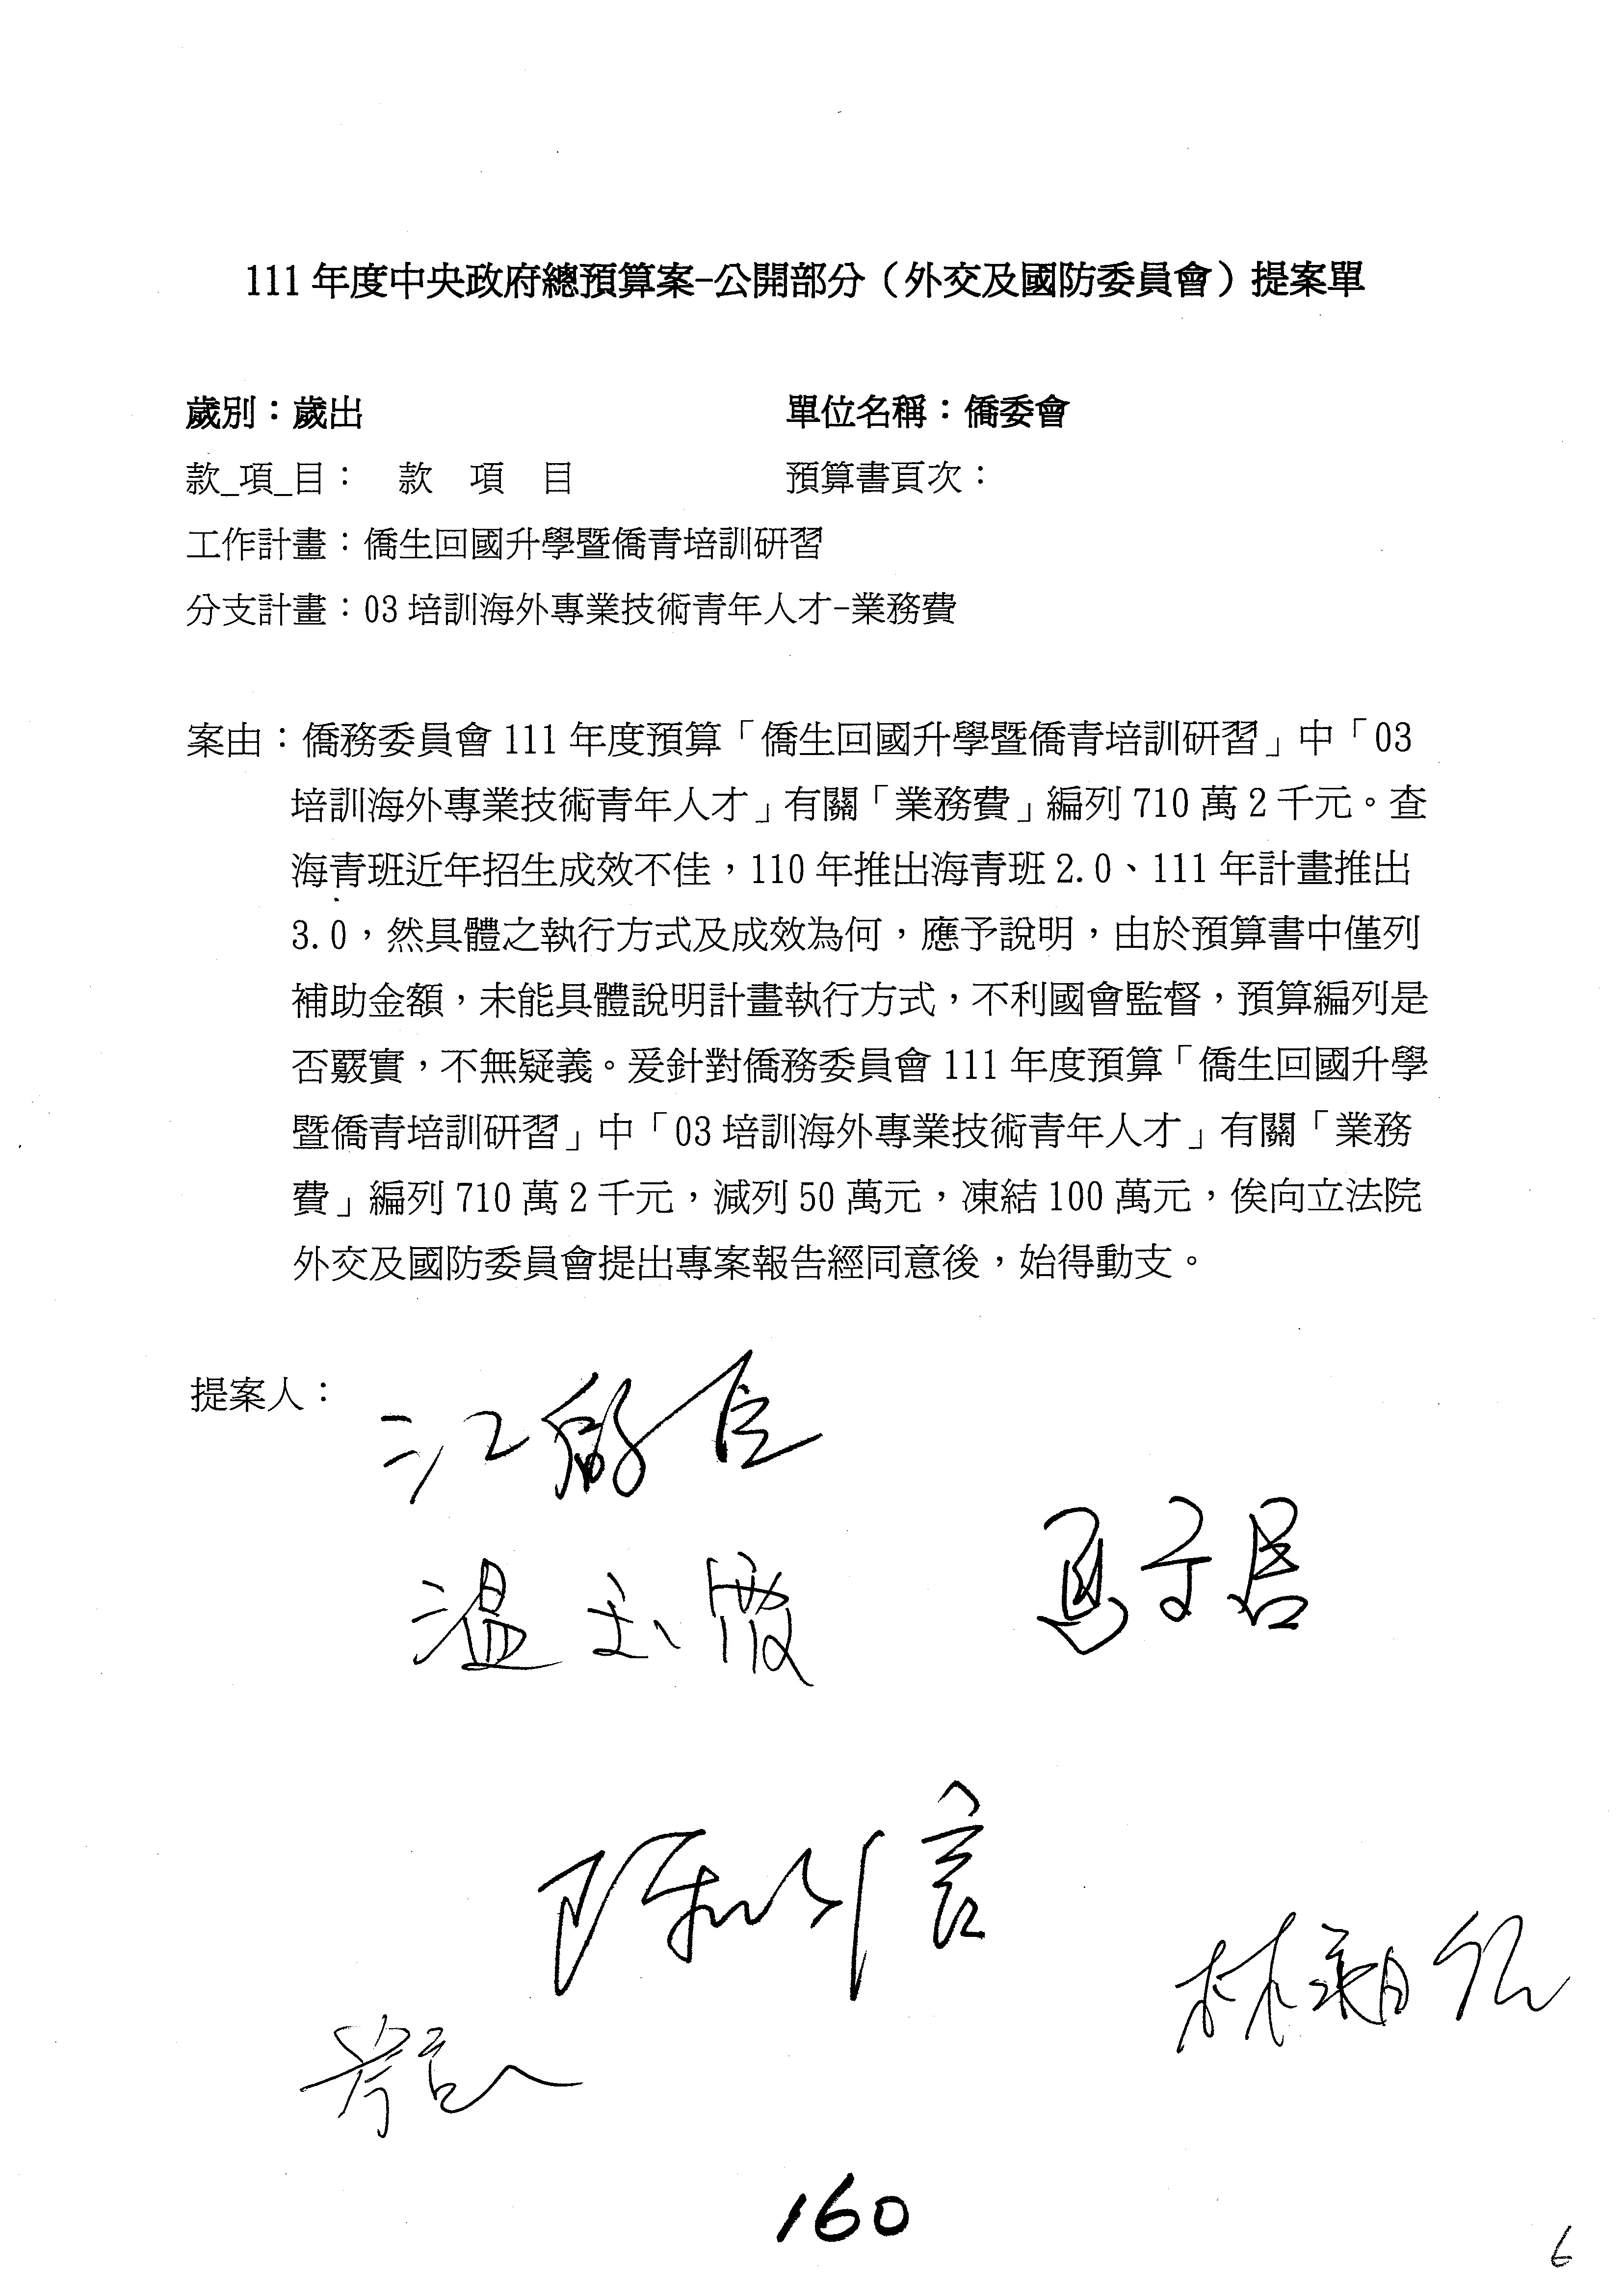 111 年度中央政府總預算案-公開部分（外交及國防委員會）提案單
歲別：歲出 單位名稱：僑委會
款_項_目： 款 項 目 預算書頁次：
工作計畫：僑生回國升學暨僑青培訓研習
分支計畫：03 培訓海外專業技術青年人才-業務費
案由：僑務委員會 111 年度預算「僑生回國升學暨僑青培訓研習」中「03
培訓海外專業技術青年人才」有關「業務費」編列 710 萬 2 千元。查
海青班近年招生成效不佳，110 年推出海青班 2.0、111 年計畫推出
3.0，然具體之執行方式及成效為何，應予說明，由於預算書中僅列
補助金額，未能具體說明計畫執行方式，不利國會監督，預算編列是
否覈實，不無疑義。爰針對僑務委員會 111 年度預算「僑生回國升學
暨僑青培訓研習」中「03 培訓海外專業技術青年人才」有關「業務
費」編列 710 萬 2 千元，減列 50 萬元，凍結 100 萬元，俟向立法院
外交及國防委員會提出專案報告經同意後，始得動支。
提案人：
江啟臣
溫玉霞 馬文君
陳以信
160
6